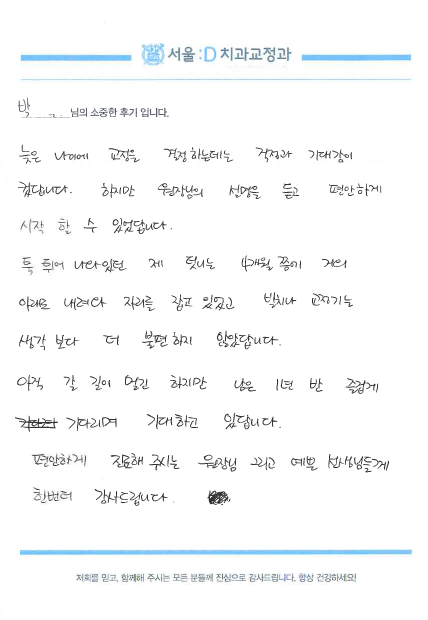 서울:D 치과교정과
박 님의 소중한 후기 입니다.
늦은 나이에 교정을 결정 하는데는 걱정과 기대감이
컸답니다. 하지만 원장님의 설명을 듣고 편안하게
시작 할 수 있었답니다.
툭 튀어 나와있던 제 덧니는 4개월 쯤에 거의
아래로 내려와 자리를 잡고 있었고 발치나 교정기는
생각 보다 더 불편 하지 않았답니다.
아직 갈 길이 멀긴 하지만 남은 1년 반 즐겁게
기다리며 기대하고 있답니다.
편안하게 진료해 주시는 원장님 그리고 예쁜 선생님들께
한번더 감사드립니다.
저희를 믿고, 함께해 주시는 모든 분들께 진심으로 감사드립니다. 항상 건강하세요!